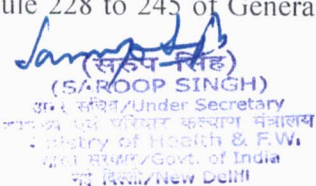 ule 228 to 245 of Genera
(सरूप सिंह)
(SAROOP SINGH)
सचिव/Under Secretary
परिवार कल्याण मंत्रालय
Ministry of Health & F.W.
सरकार/Govt. of India
नई दिल्ली/New Delhi